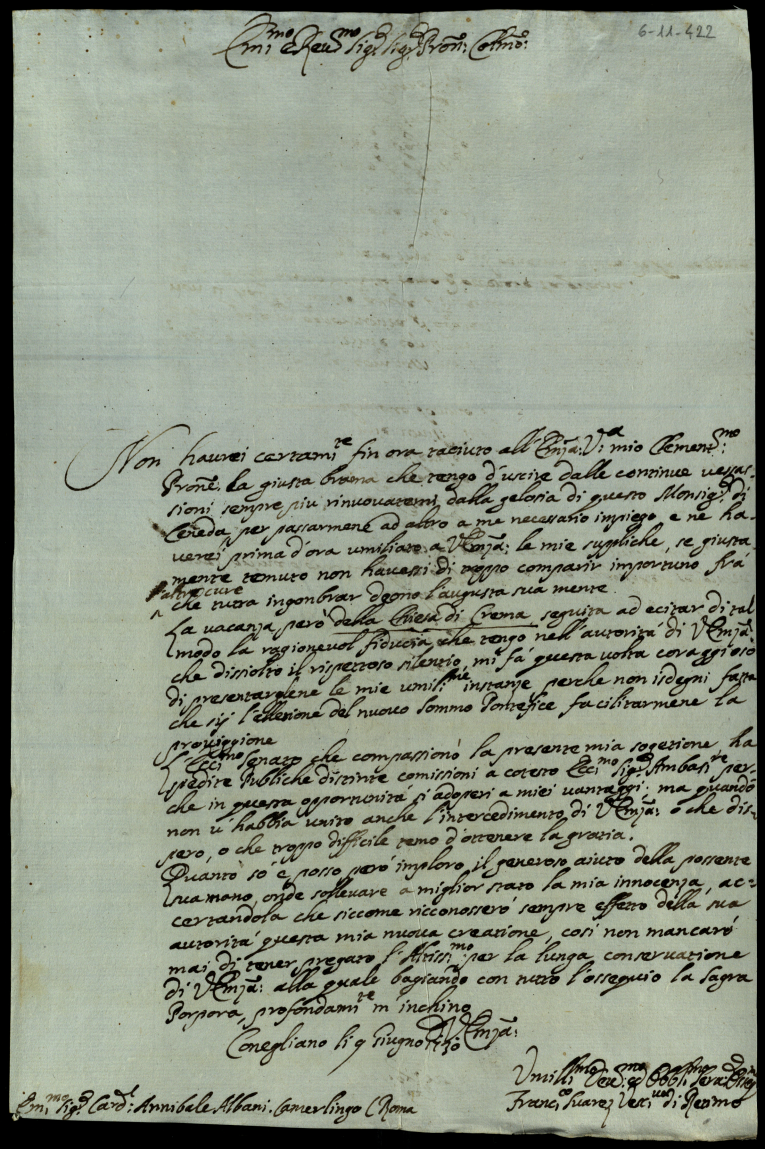 6-11-422
Emi.mo e Reu.mo Sig.r Sig.r Pron: Colmo:
Non haurei certam.te fin ora taciuto all'Emza: V.a mio Clement.mo:
Prone: la giusta brama che tengo d'uscire dalle continue uessas-
sioni sempre piu rinuouatemi dalla gelosia di questo Monsig.r di
Ceneda per passarmene ad altro a me necessario impiego e ne ha-
uerei prima d'ora umiliate a V Emza: le mie suppliche, se giusta-
mente temuto non hauessi di troppo comparir importuno frà
l'altre cure
che tutta ingombrar deono l'augusta sua mente.
La uacanza però della Chiesa di Crema seguita ad ecitar di tal
modo la ragioneuol fiducia, che tengo nell'autorità di V Emza:
che dissiolto il rispettoso silentio, mi fà questa uolta coraggioso
di presentargliene le mie umiliss.me instanze, perche non isdegni fatta
che sij l'ellezione del nuouo Sommo Pontefice facilitarmene la
prouiggione
L'Ecc.mo Senato che compassionò la presente mia sogezione, ha
spedite Publiche distinte comissioni a cotesto Ecc.mo Sig.r Ambas.re per-
che in questa opportunità s'adoperi a miei uantaggi: ma quando
non u'habbia unito anche l'intercedimento di V Emza: o che dis-
pero, o che troppo difficile temo d'ottenere la grazia.
Quanto sò è posso però imploro il generoso aiuto della possente
sua mano, onde solleuare a miglior stato la mia innocenza, ac-
certandola che siccome ricconosserò sempre effetto della sua
autorità questa mia nuoua creatione, così non mancarò
mai di tener pregato l'Altiss.mo per la lunga conseruatione
di V Emza: alla quale bagiando con tutto l'ossequio la Sagra
Porpora, profondam.te m'inchino
Di V Emza:
Conegliano li 9 Giugno 1730
Umiliss.mo Deu.mo Obblig.mo Seru.
Franc.co Suarez Vesc.uo di Retimo
Emi.mo Sig.r Card.l: Annibale Albani. Camerlingo (Roma